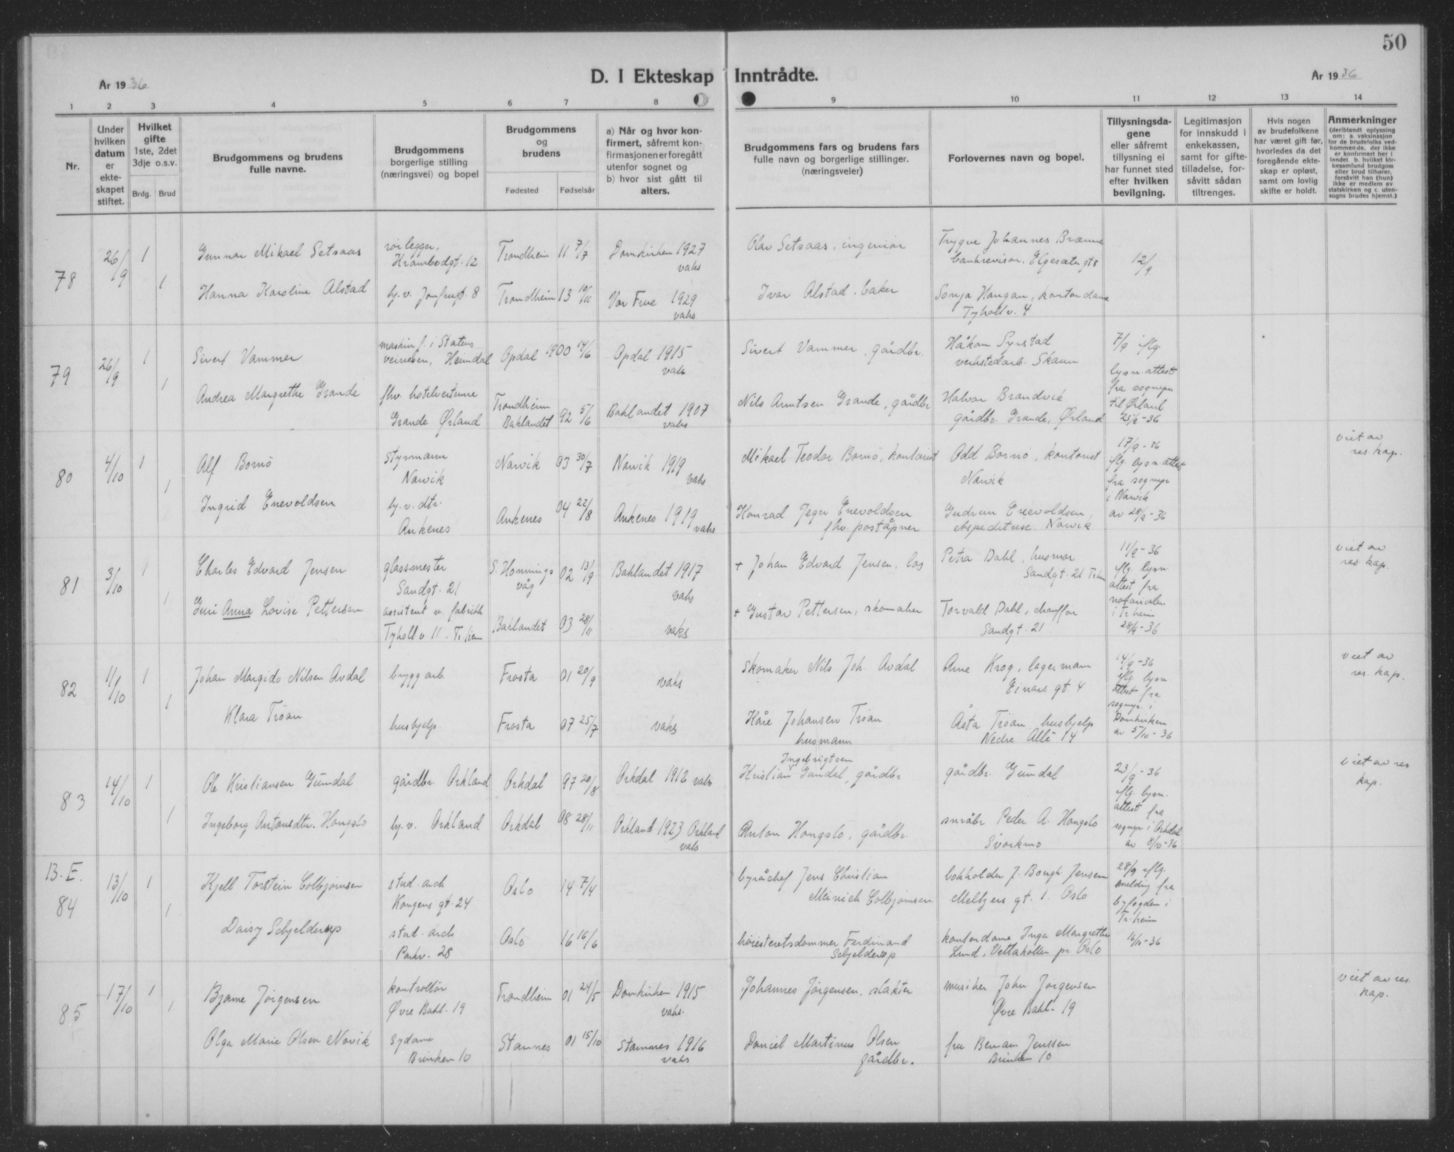 50
År 1936
D. I Ekteskap Inntrådte.
År 1936
1 2 3 4 5 6 7 8 9 10 11 12 13 14
Nr.
Under hvilken datum er ekteskapet stiftet.
Hvilket gifte 1ste, 2det 3dje o.s.v.
Brdg. Brud
Brudgommens og brudens fulle navne.
Brudgommens borgerlige stilling (næringsvei) og bopel
Brudgommens og brudens
Fødested Fødselsår
a) Når og hvor konfirmert, såfremt konfirmasjonen er foregått utenfor sognet og
b) hvor sist gått til alters.
Brudgommens fars og brudens fars fulle navn og borgerlige stillinger. (næringsveier)
Forlovernes navn og bopel.
Tillysningsdagene eller såfremt tillysning ei har funnet sted efter hvilken bevilgning.
Legitimasjon for innskudd i enkekassen, samt for giftetilladelse, forsåvitt sådan tiltrenges.
Hvis nogen av brudefolkene har været gift før, hvorledes da det foregående ekteskap er opløst, samt om lovlig skifte er holdt.
Anmerkninger
78 26/9 1 Gunnar Mikael Setsaas rørlegger, Krambodgt. 12 Trondheim 11 7/7 Domkirken 1927 vaks Olav Setsaas, ingeniør Trygve Johannes Brænne bankrevisor, Elgesætergt 8 12/9
1 Hanna Karoline Alstad hj.v. Jonsvgt 8 Trondheim 13 Vor Frue 1929 vaks Ivar Alstad, baker Sonja Haugan, kontordame Tyhollv. 4
79 26/9 1 Sivert Vammer maskinf. i Statens veivesen, Heimdal Opdal 1900 Opdal 1915 vaks Sivert Vammer, gårdbr. Håkon Syrstad verkstedarb. Skaun 7/9 iflg. lysn. attest fra sognepr. til Ørland
1 Andrea Margrethe Grande fhv. hotelvertinne Grande Ørland Trondheim Baklandet 92 5/6 Baklandet 1907 vaks Nils Arntsen Grande, gårdbr Halvor Brandvik gårdbr. Grande, Ørland
80 4/10 1 Alf Bornø styrmann Narvik Narvik 03 30/7 Narvik 1919 vaks Mikael Teodor Bornø, kontorist Odd Bornø, kontorist Narvik 17/9-36 iflg lysn attest fra sognepr i Narvik viet av res kap.
1 Ingrid Enevoldsen hj.v. dtr. Ankenes Ankenes 04 22/8 Ankenes 1919 vaks Konrad Jeger Enevoldsen fhv. poståpner Gudrun Enevoldsen, ekspeditrise Narvik
81 3/10 1 Charles Edvard Jensen glassmester Sandgt. 21 S. Honningsvåg 02 13/9 Baklandet 1917 vaks + Johan Edvard Jensen, los Petra Dahl, husmor Sandgt. 21 Tr.heim 11/9-36 iflg. lysn. attest fra notarialen i Tr.heim viet av res kap.
1 Guri Anna Lovise Pettersen assistent v. fabrikk Tyhollv. 11 - Tr.heim Baklandet 03 28/11 vaks + Gustav Pettersen, skomaker Torvald Dahl, chauffør Sandgt 21
82 11/10 1 Johan Margido Nilsen Avdal bygg.arb Frosta 01 20/9 vaks skomaker Nils Joh. Avdal Arne Krog, lagermann Einars gt 4 14/9-36 iflg lysn attest fra sognepr. i Domkirken av 5/10-36 viet av res. kap.
1 Klara Trøan hushjelp Frosta 07 25/7 vaks Kåre Johansen Trøan husmann Åsta Trøan, hushjelp Nedre Allé 14
83 14/10 1 Ole Kristiansen Gumdal gårdbr Orkland Orkdal 97 20/8 Orkdal 1912 vaks Kristian Ingebrigtsen Gumdal, gårdbr gårdbr. Gumdal 23/9-36 iflg. lysn. attest fra sognepr i Orkdal av 9/10-36 viet av res kap.
1 Ingeborg Antonsdtr. Hongslo hj.v. Orkland Orkdal 08 28/11 Orkland 1923 Orkland vaks Anton Hongslo, gårdbr småbr Peder A. Hongslo Svorkmo
13-E. 84 13/10 1 Kjell Torstein Colbjørnsen stud. arch Kongens gt 24 Oslo 14 7/4 byråchef Jens Christian Meinich Colbjørnsen bokholder J. Bough Jensen Meltzers gt. 1. Oslo 28/9 iflg. melding fra byfogden i Tr.heim
1 Daisy Schjelderup stud. arch Parkv. 28 Oslo 16 16/6 høiesteretsdommer Ferdinand Schjelderup kontordame Inga Margrethe Lund, Vettakollen pr Oslo
85 17/10 1 Bjarne Jørgensen kontrollør Øvre Bakl. 19 Trondheim 01 24/5 Domkirken 1915 vaks. Johannes Jørgensen, slakter musiker John Jørgensen Øvre Bakl. 19 viet av res kap.
1 Olga Marie Olsen Novik sydame Brinken 10 Stamnes 01 15/10 Stamnes 1916 vaks Daniel Martinus Olsen gårdbr. fru Jenssen Brinken 10